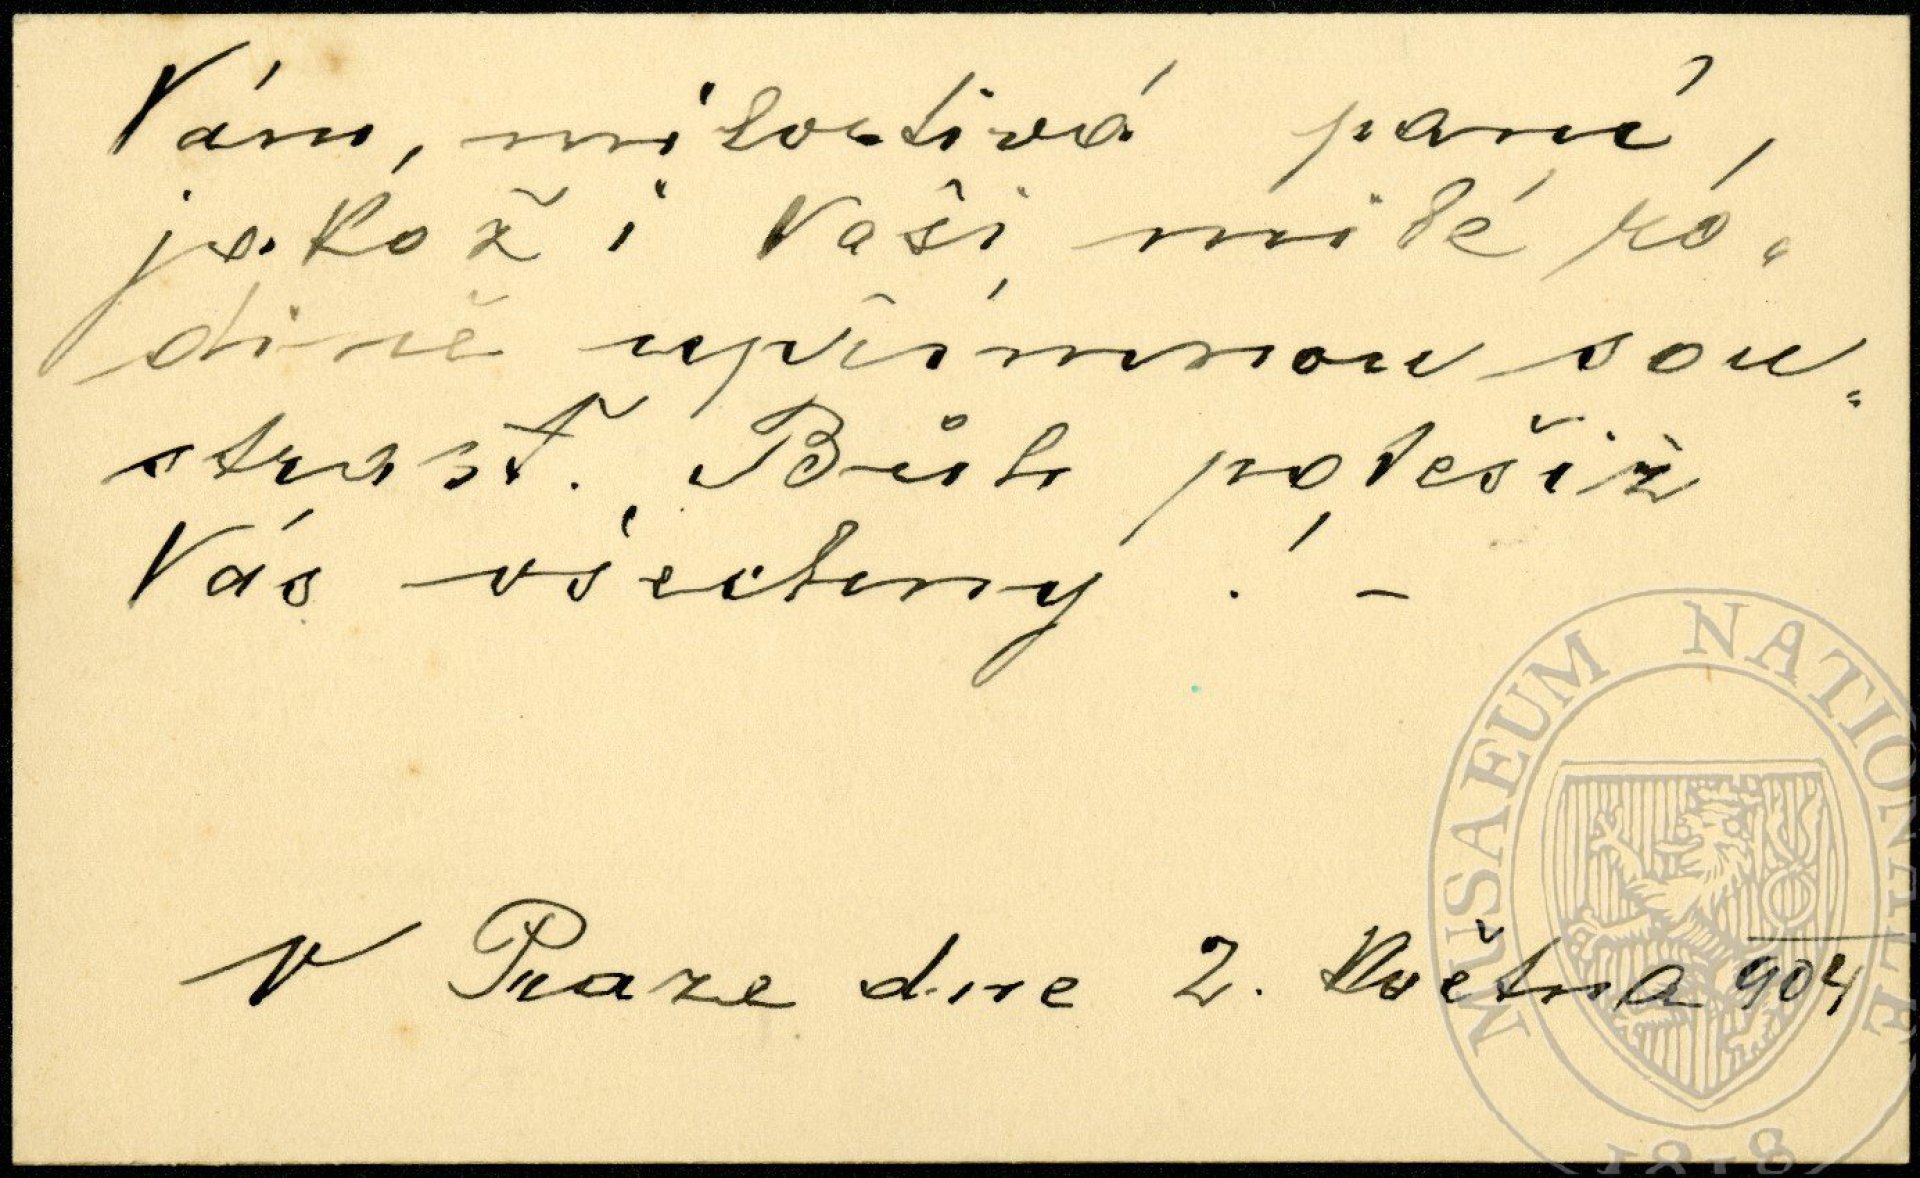 Vám, milostivá paní,
jakož i Vaší milé ro-
dině upřímnou sou-
strasť. Bůh potěšiž
Vás všechny! –
V Praze dne 2. Května 904
MUSAEUM NATIONALE
1818